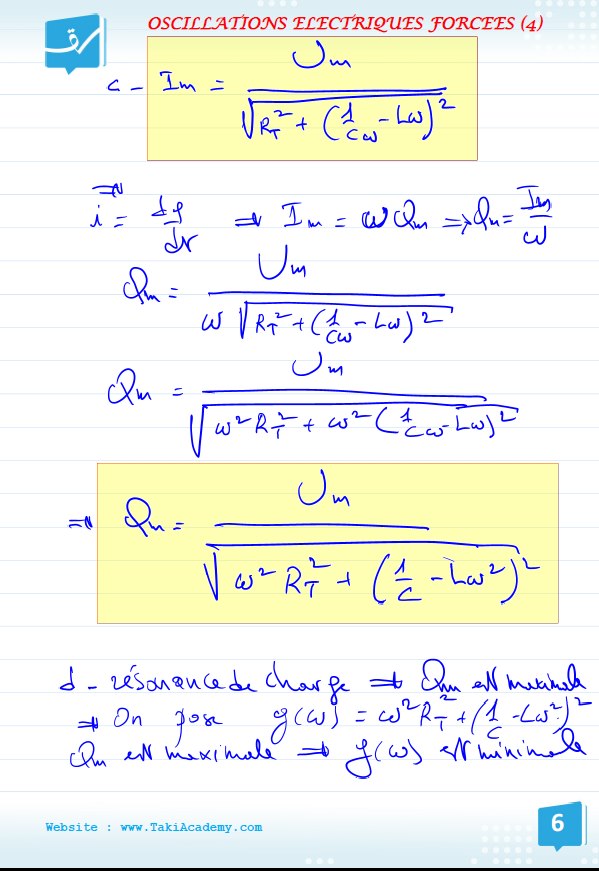 OSCILLATIONS ELECTRIQUES FORCEES (4)
c - Im = Um / √(R_T² + (1/Cω - Lω)²)
i = dq/dt ⇒ Im = ω Qm ⇒ Qm = Im/ω
Qm = Um / (ω √(R_T² + (1/Cω - Lω)²))
Qm = Um / √(ω² R_T² + ω² (1/Cω - Lω)²)
⇒ Qm = Um / √(ω² R_T² + (1/C - Lω²)²)
d - résonance de charge ⇒ Qm est maximale
⇒ On pose g(ω) = ω² R_T² + (1/C - Lω²)²
Qm est maximale ⇒ g(ω) est minimale
Website : www.TakiAcademy.com
6